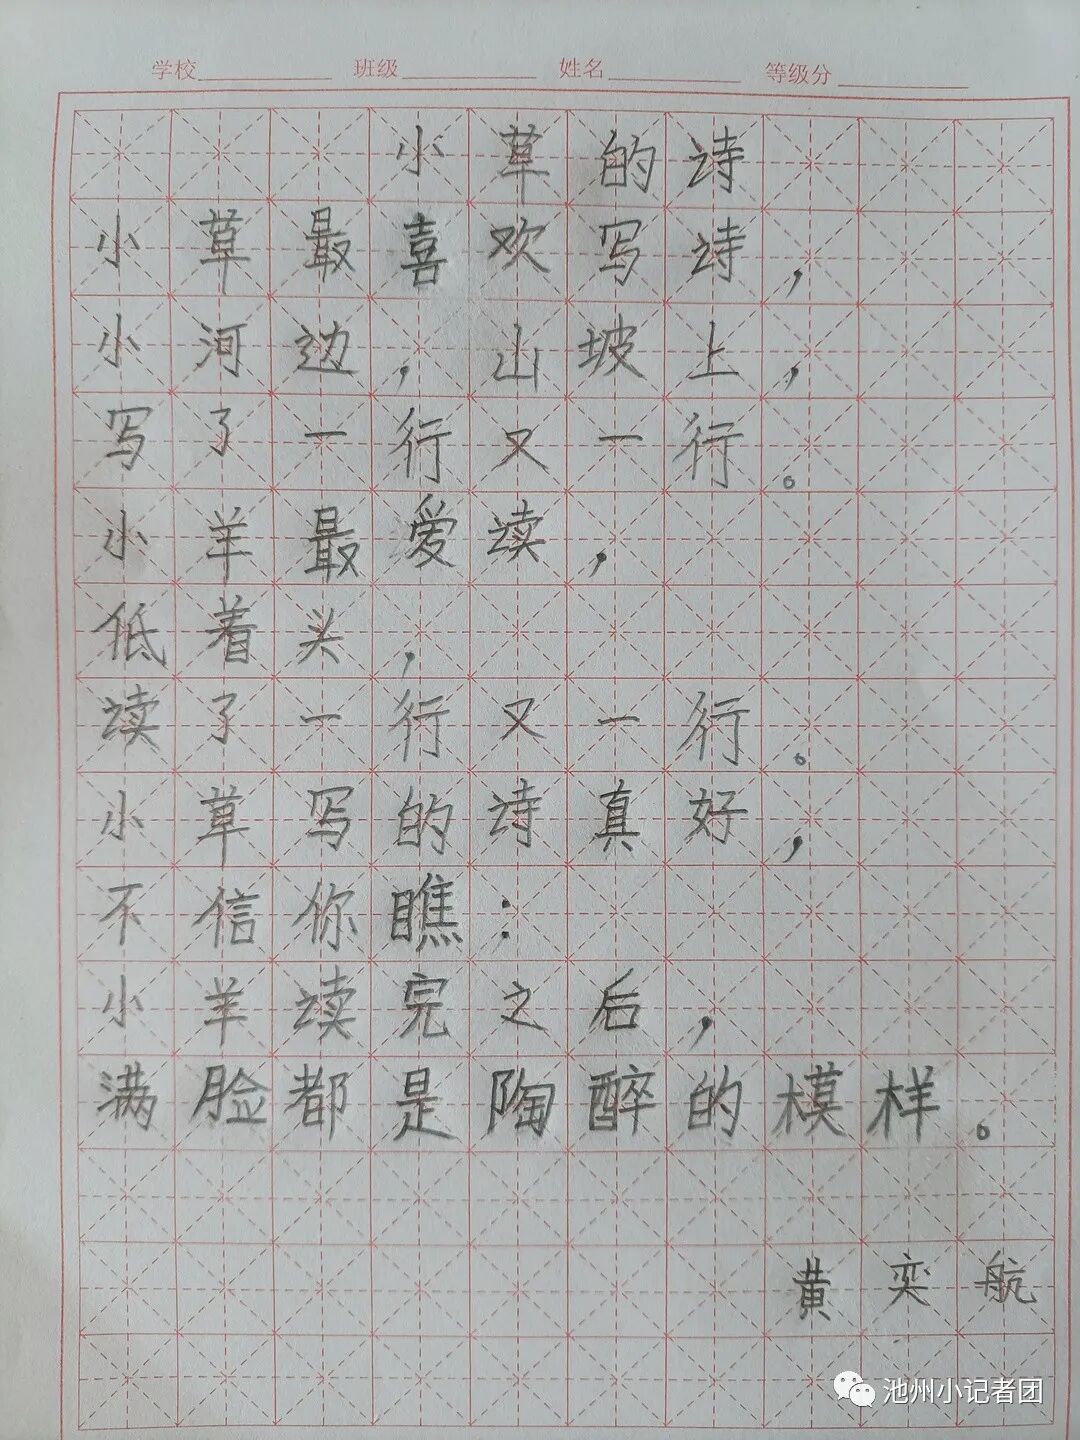 学校 班级 姓名 等级分
小草的诗
小草最喜欢写诗，
小河边，山坡上，
写了一行又一行。
小羊最爱读，
低着头，
读了一行又一行。
小草写的诗真好，
不信你瞧：
小羊读完之后，
满脸都是陶醉的模样。
黄奕航
池州小记者团